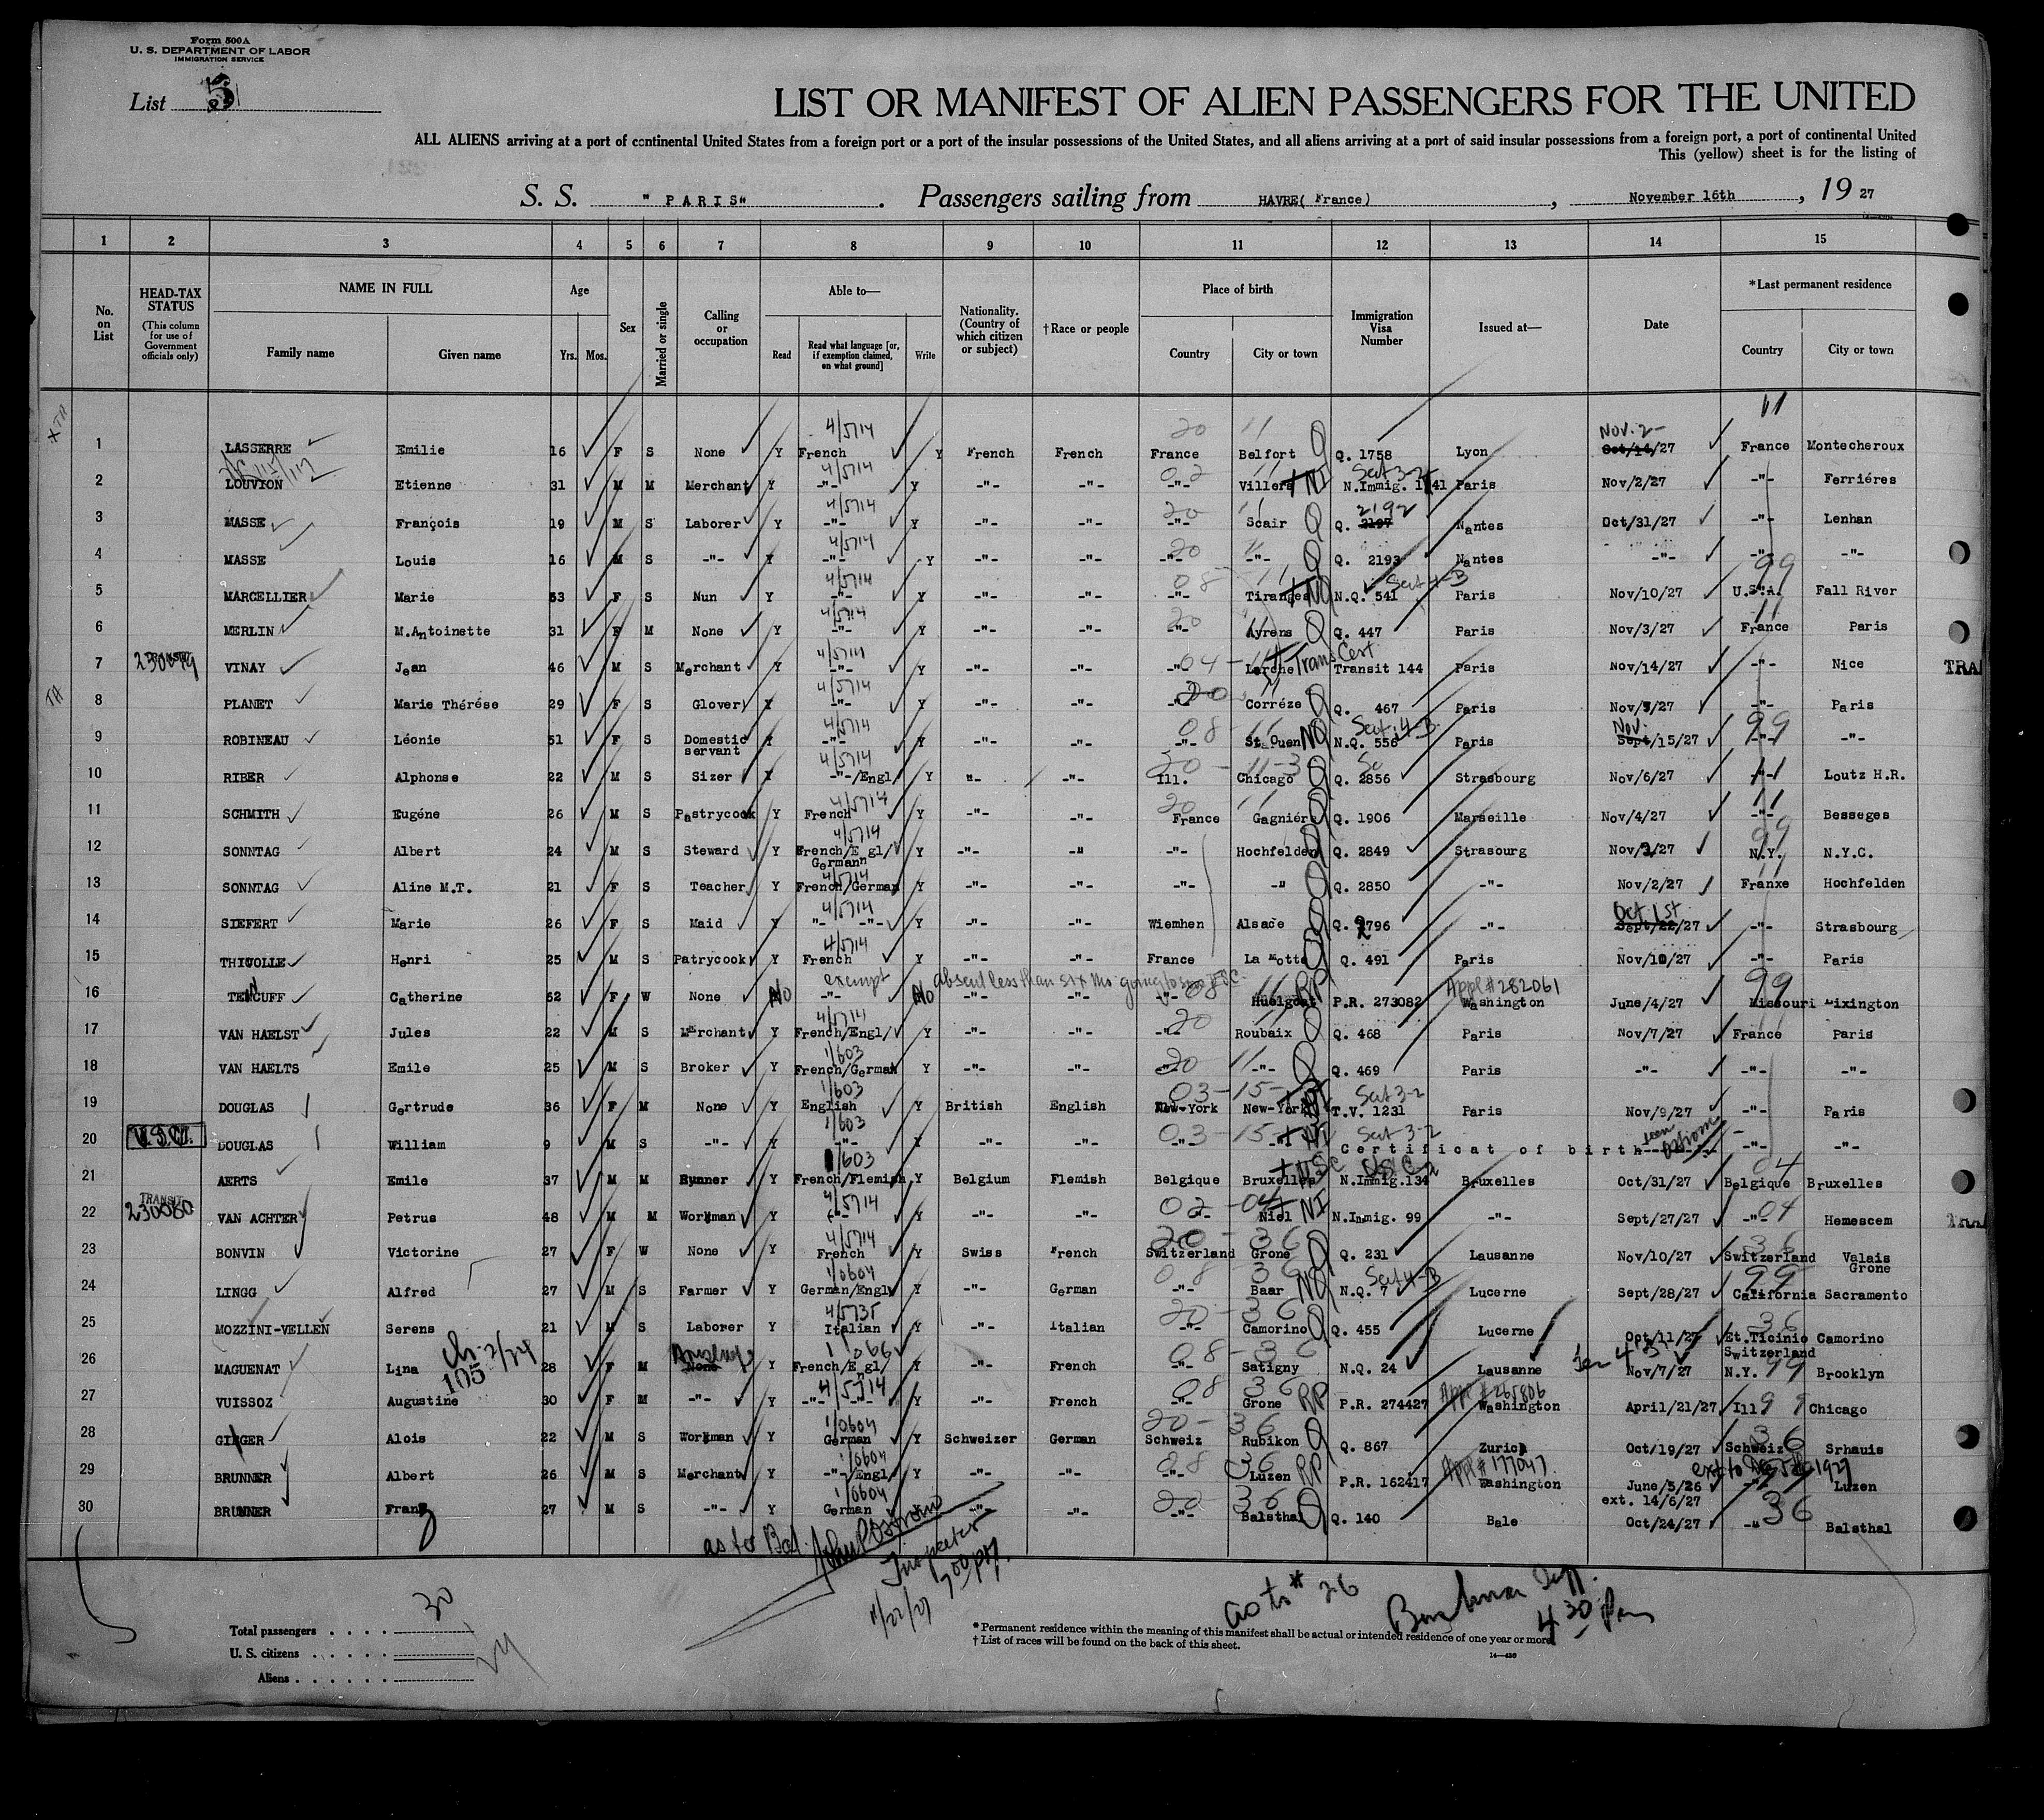 Form 500A
U. S. DEPARTMENT OF LABOR
IMMIGRATION SERVICE
List 5
LIST OR MANIFEST OF ALIEN PASSENGERS FOR THE UNITED
ALL ALIENS arriving at a port of continental United States from a foreign port or a port of the insular possessions of the United States, and all aliens arriving at a port of said insular possessions from a foreign port, a port of continental United
This (yellow) sheet is for the listing of
S. S. "PARIS". Passengers sailing from HAVRE( France), November 16th, 19 27
1 2 3 4 5 6 7 8 9 10 11 12 13 14 15
No. on List
HEAD-TAX STATUS (This column for use of Government officials only)
NAME IN FULL
Family name
Given name
Age
Yrs. Mos.
Sex
Married or single
Calling or occupation
Able to—
Read
Read what language [or, if exemption claimed, on what ground]
Write
Nationality. (Country of which citizen or subject)
† Race or people
Place of birth
Country
City or town
Immigration Visa Number
Issued at—
Date
*Last permanent residence
Country
City or town
1 LASSERRE Emilie 16 F S None Y French 4/5714 Y French French France 20 11 Belfort Q Q. 1758 Lyon Nov. 2- Oct/14/27 France 11 Montecheroux
2 LOUVION Etienne 31 M M Merchant Y -"- 4/5714 Y -"- -"- -"- 02 11 Villers NI N.Immig. Sect 3-2 41 Paris Nov/2/27 -"- Ferriéres
3 MASSE François 19 M S Laborer Y -"- 4/5714 Y -"- -"- -"- 20 11 Scair Q Q. 2197 2192 Nantes Oct/31/27 -"- Lenhan
4 MASSE Louis 16 M S -"- Y -"- 4/5714 Y -"- -"- -"- 20 11 -"- Q Q. 2193 Nantes -"- -"- -"-
5 MARCELLIER Marie 53 F S Nun Y -"- 4/5714 Y -"- -"- -"- 08 11 Tiranges NQ N.Q. 541 Sect 4-B Paris Nov/10/27 U.S.A. 99 Fall River
6 MERLIN M.Antoinette 31 F M None Y -"- 4/5714 Y -"- -"- -"- 20 11 Ayrens Q Q. 447 Paris Nov/3/27 France 11 Paris
7 TRANSIT 230079 VINAY Jean 46 M S Merchant Y -"- 4/5714 Y -"- -"- -"- 04-11 Larche Trans Cert Transit 144 Paris Nov/14/27 -"- Nice
8 PLANET Marie Thérése 29 F S Glover Y -"- 4/5714 Y -"- -"- -"- 20 11 Corréze Q Q. 467 Paris Nov/5/27 -"- Paris
9 ROBINEAU Léonie 51 F S Domestic servant Y -"- 4/5714 Y -"- -"- -"- 08-11 St.Ouen NQ N.Q. 556 Sect. 4-B Paris Nov. Sept/15/27 -"- 99 -"-
10 RIBER Alphonse 22 M S Sizer Y -"-/Engl/ 4/5714 Y "- -"- Ill. 20-11-3 Chicago Q Q. 2856 Strasbourg Nov/6/27 -"- 11 Loutz H.R.
11 SCHMITH Eugéne 26 M S Pastrycook Y French 4/5714 Y -"- -"- France 20 11 Gagniére Q Q. 1906 Marseille Nov/4/27 -"- 11 Besseges
12 SONNTAG Albert 24 M S Steward Y French/E gl/ Germann 4/5714 Y -"- -" -"- Hochfelden Q Q. 2849 Strasourg Nov/2/27 N.Y. 99 N.Y.C.
13 SONNTAG Aline M.T. 21 F S Teacher Y French/German 4/5714 Y -"- -"- -"- -" Q Q. 2850 -"- Nov/2/27 Franxe Hochfelden
14 SIEFERT Marie 26 F S Maid Y "- -"- 4/5714 Y -"- -"- Wiemhen Alsace Q Q. 2796 -"- Oct 1st Sept/22/27 -"- Strasbourg
15 THIVOLLE Henri 25 M S Patrycook Y French 4/5714 Y -"- -"- France La Motte Q Q. 491 Paris Nov/10/27 -"- Paris
16 Catherine 52 F W None No -"- exempt No absent less than six mo going to son -"- -"- -"- 08 11 Huelgoat RP P.R. 273082 Appl# 282061 Washington June/4/27 Missouri 99 Mixington
17 VAN HAELST Jules 22 M S Merchant Y French/Engl/ 4/5714 Y -"- -"- -"- 20 11 Roubaix Q Q. 468 Paris Nov/7/27 France Paris
18 VAN HAELTS Emile 25 M S Broker Y French/German 1/603 Y -"- -"- -"- 20 11 -"- Q Q. 469 Paris -"- -"- -"-
19 DOUGLAS Gertrude 36 F M None Y English 1/603 Y British English New-York 03-15- New-York T.V. 1231 Sect 3-2 Paris Nov/9/27 -"- Paris
20 U.S.C. DOUGLAS William 9 M S -"- Y -"- 1/603 Y -"- -"- -"- 03-15 NI Sect 3-2 Certificat of birth seen -"- -"-
21 AERTS Emile 37 M M Runner Y French/Flemish 1/603 Y Belgium Flemish Belgique Bruxelles USC N.Immig.134 Bruxelles Oct/31/27 Belgique 04 Bruxelles
22 TRANSIT 230080 VAN ACHTER Petrus 48 M M Workman Y -"- 4/5714 Y -"- -"- -"- 02-04 Niel NI N.Immig. 99 -"- Sept/27/27 -"- 04 Hemescem
23 BONVIN Victorine 27 F W None Y French 4/5714 Y Swiss French Switzerland 20-36 Grone Q Q. 231 Lausanne Nov/10/27 Switzerland 36 Valais Grone
24 LINGG Alfred 27 M S Farmer Y German/Engl 1/0604 Y -"- German -"- 08 36 Baar NQ N.Q. 7 Sect 4-B Lucerne Sept/28/27 California 99 Sacramento
25 MOZZINI-VELLEN Serens 21 M S Laborer Y Italian 4/5735 Y -"- Italian -"- 20-36 Camorino Q Q. 455 Lucerne Oct/11/27 Et.Ticinio 36 Camorino Switzerland
26 MAGUENAT Lina 105 28 F M None Y French/E gl/ Y -"- French -"- 08-36 Satigny N.Q. 24 Lausanne Nov/7/27 N.Y. 99 Brooklyn
27 VUISSOZ Augustine 30 F M -"- Y -"- -"- 4/5714 Y -"- French -"- 08 36 Grone RP P.R. 274427 Appl# 265806 Washington April/21/27 Ill 99 Chicago
28 GINGER Alois 22 M S Workman Y German 1/0604 Y Schweizer German Schweiz 20-36 Rubikon Q Q. 867 Zurich Oct/19/27 Schweiz 36 Srhauis
29 BRUNNER Albert 26 M S Merchant Y -"-/Engl/ 1/0604 Y -"- -"- -"- 08 36 Luzen RP P.R. 162417 Appl# 177047 Washington June/5/26 ext. 14/6/27 ext to 1927 -"- Luzen
30 BRUNNER Franz 27 M S -"- Y German 1/0604 Y -"- -"- -"- 20-36 Balsthal Q Q. 140 Bale Oct/24/27 -" 36 Balsthal
as to Bal.
Inspector
11/22/27 700 PM.
as to # 26
4 30 Pm
Total passengers . . . . 30
U. S. citizens . . . . .
Aliens . . . . . .
* Permanent residence within the meaning of this manifest shall be actual or intended residence of one year or more.
† List of races will be found on the back of this sheet.
14—430